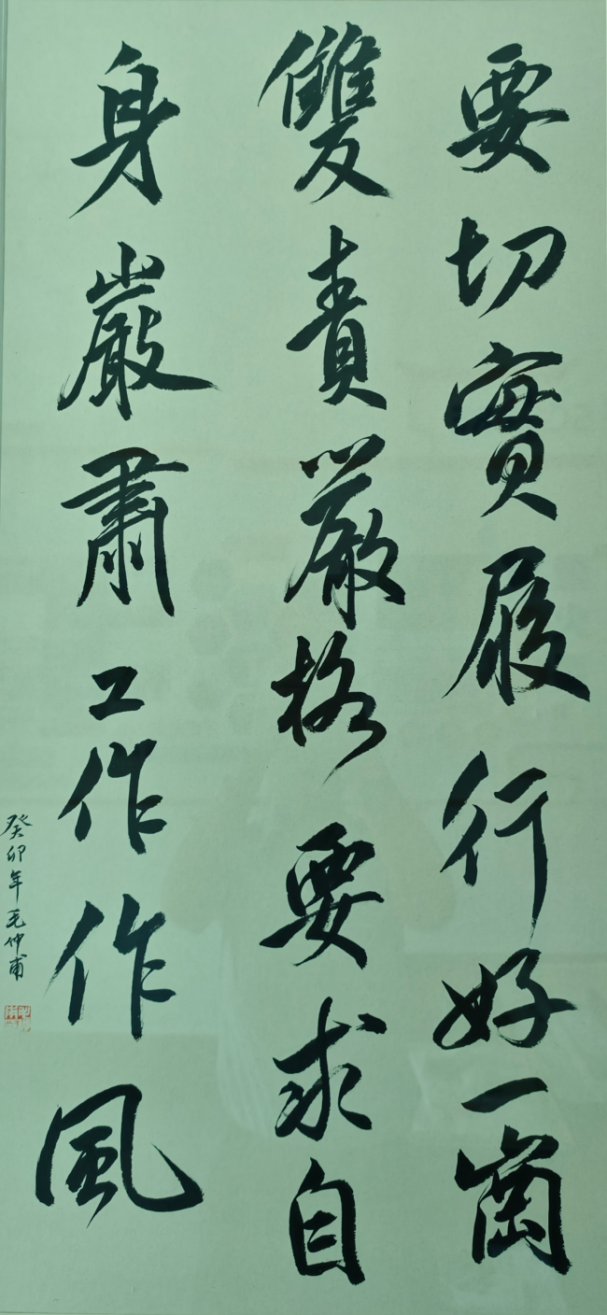 要切實履行好一崗
雙責嚴格要求自
身嚴肅工作作風
癸卯年毛仲甫